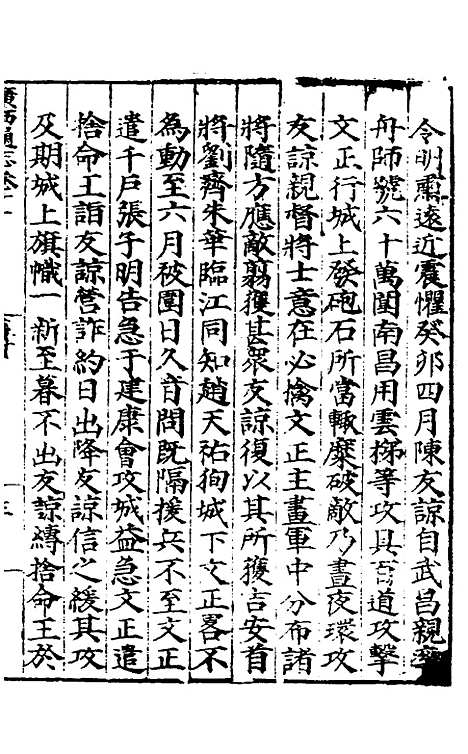 令明肅遠近震懼癸卯四月陳友諒自武昌親率
舟師號六十萬圍南昌用雲梯等攻具百道攻擊
文正行城上發砲石所當輒糜破敵乃晝夜環攻
友諒親督將士意在必擒文正主畫軍中分布諸
將隨方應敵剪獲甚眾友諒復以其所獲吉安首
將劉齊朱華臨江同知趙天祐徇城下文正畧不
為動至六月被圍日久音問既隔援兵不至文正
遣千戶張子明告急于建康會攻城益急文正遣
捨命王詣友諒營詐約日出降友諒信之緩其攻
及期城上旗幟一新至暮不出友諒縛捨命王於
廣西通志卷十